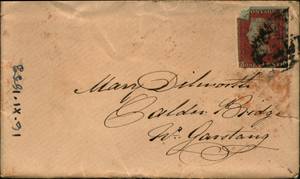 Mary Dilworth
Calder Bridge
Nr. Garstang